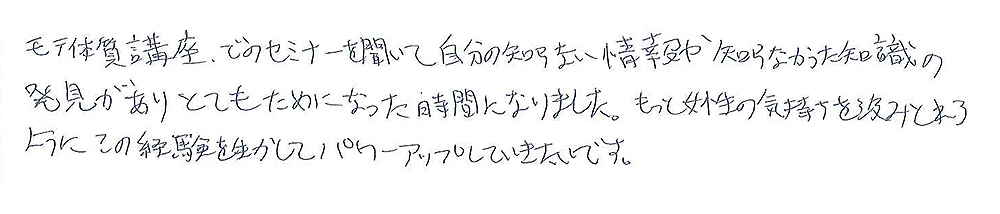 モテ体質講座、でのセミナーを聞いて自分の知らない情報や知らなかった知識の
発見がありとてもためになった時間になりました。もっと女性の気持ちを汲みとれる
ようにこの経験を生かしてパワーアップしていきたいです。